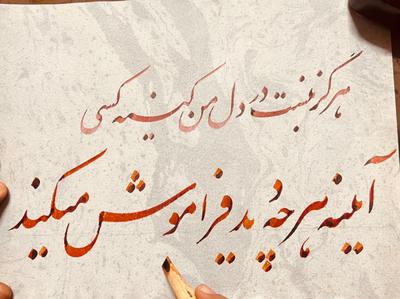 هرگز نیست در دل من کینه کسی
آیینه هر چه دید فراموش میکند